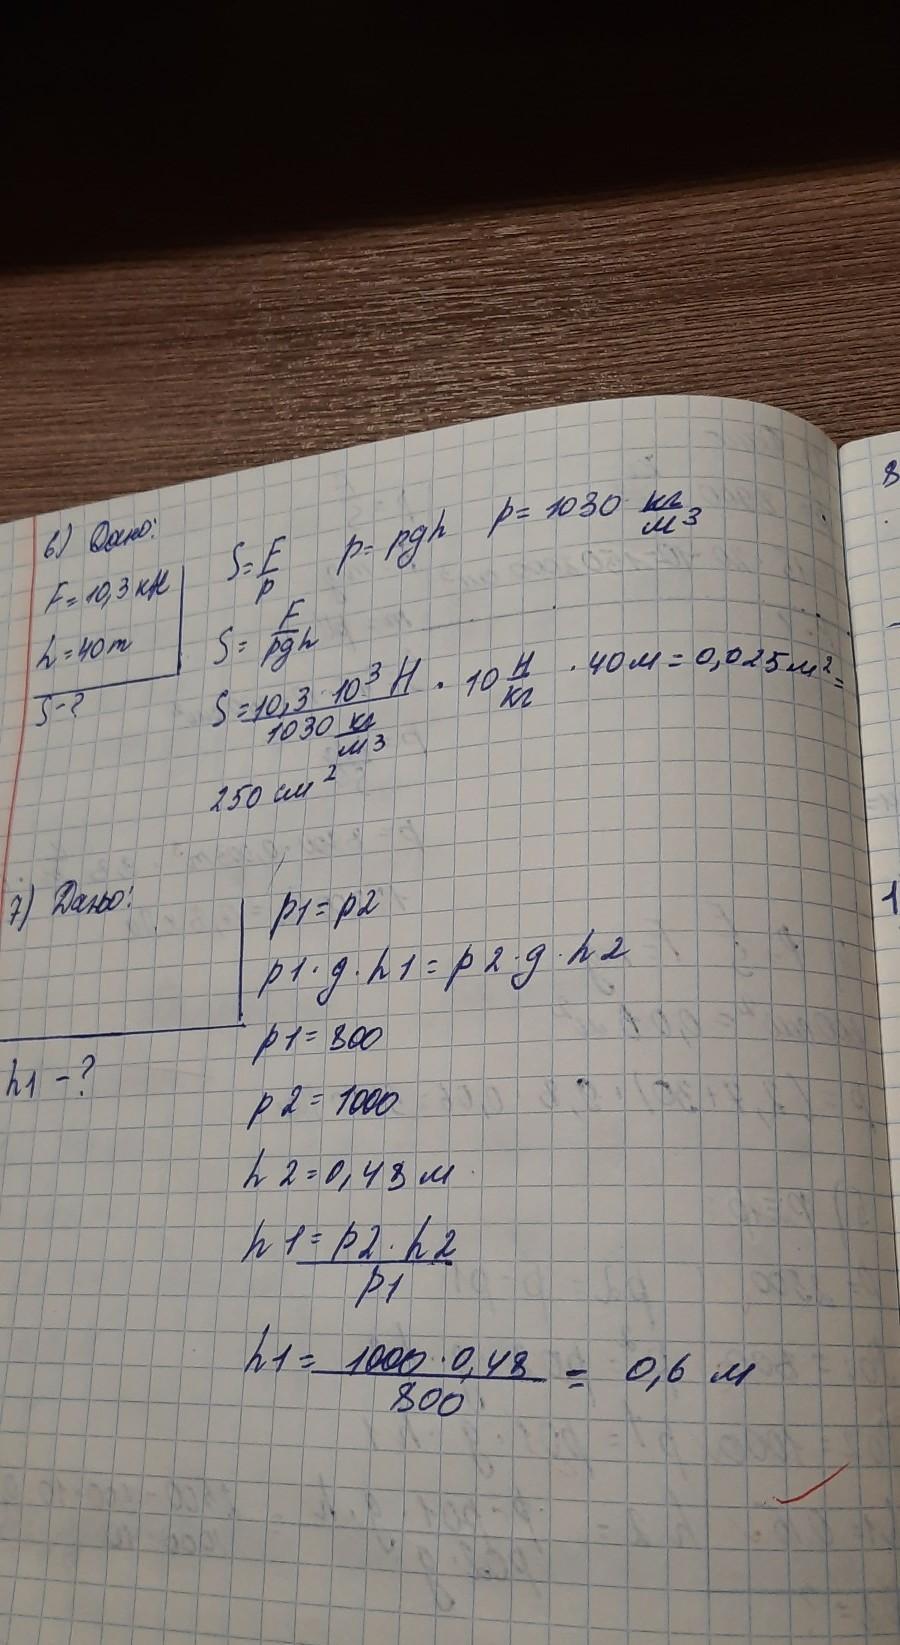 6) Дано:
F = 10,3 кН
h = 40 m
S - ?
S = F/p p = pgh p = 1030 кг/м3
S = F/pgh
S = 10,3 · 10³ Н / 1030 кг/м3 · 10 Н/кг · 40 м = 0,025 м² =
250 см²
7) Дано:
h1 - ?
p1 = p2
p1 · g · h1 = p2 · g · h2
p1 = 800
p2 = 1000
h2 = 0,48 м
h1 = p2 · h2 / p1
h1 = 1000 · 0,48 / 800 = 0,6 м
8
1